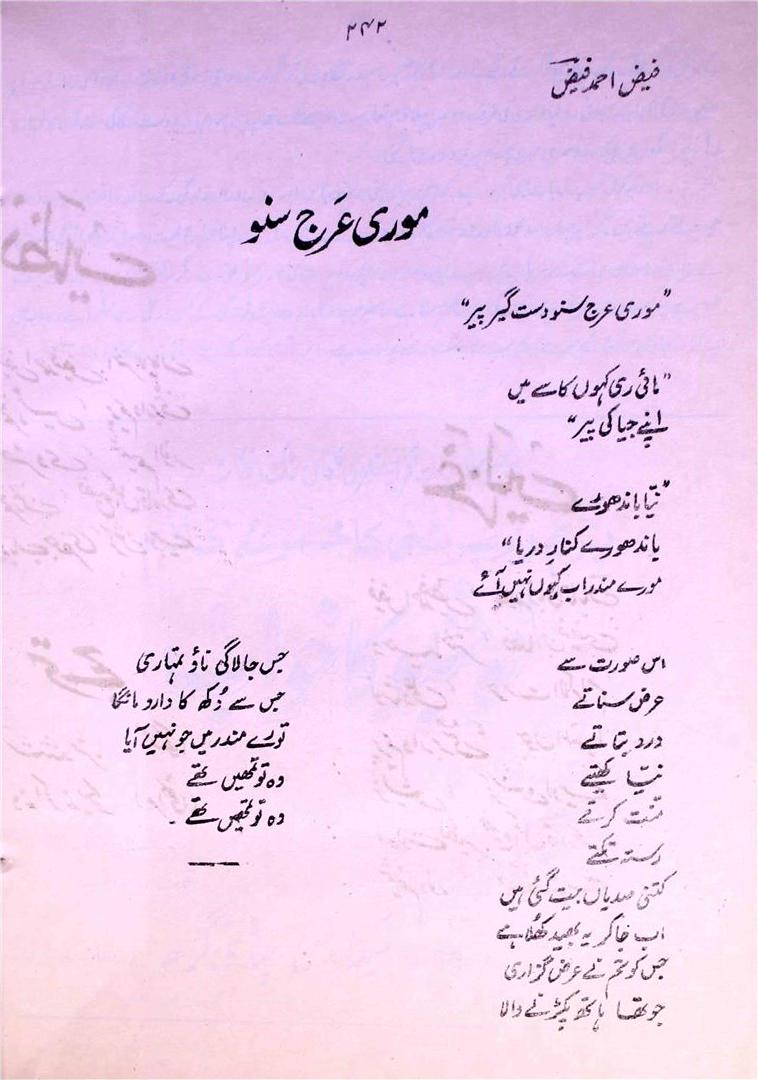 ۲۴۲
فیض احمد فیض
موری عَرَج سنو
"موری عرج سنو دست گیر پیر"
"مائی ری کہوں کاسے میں
اپنے جیا کی پیر"
"نیّا باندھورے
باندھورے کنارِ دریا"
مورے مندر اب کیوں نہیں آئے
اس صورت سے
عرض سناتے
درد بتاتے
نیّا کھیتے
منّت کرتے
رستہ تکتے
کتنی صدیاں بیت گئی ہیں
اب جاکر یہ بھید کھُلا ہے
جس کو تم نے عرض گزاری
جو تھا ہاتھ پکڑنے والا
جس جا لاگی ناؤ تمہاری
جس سے دُکھ کا دارو مانگا
تورے مندر میں جو نہیں آیا
وہ تو تمھیں تھے
وہ تو تمھیں تھے۔